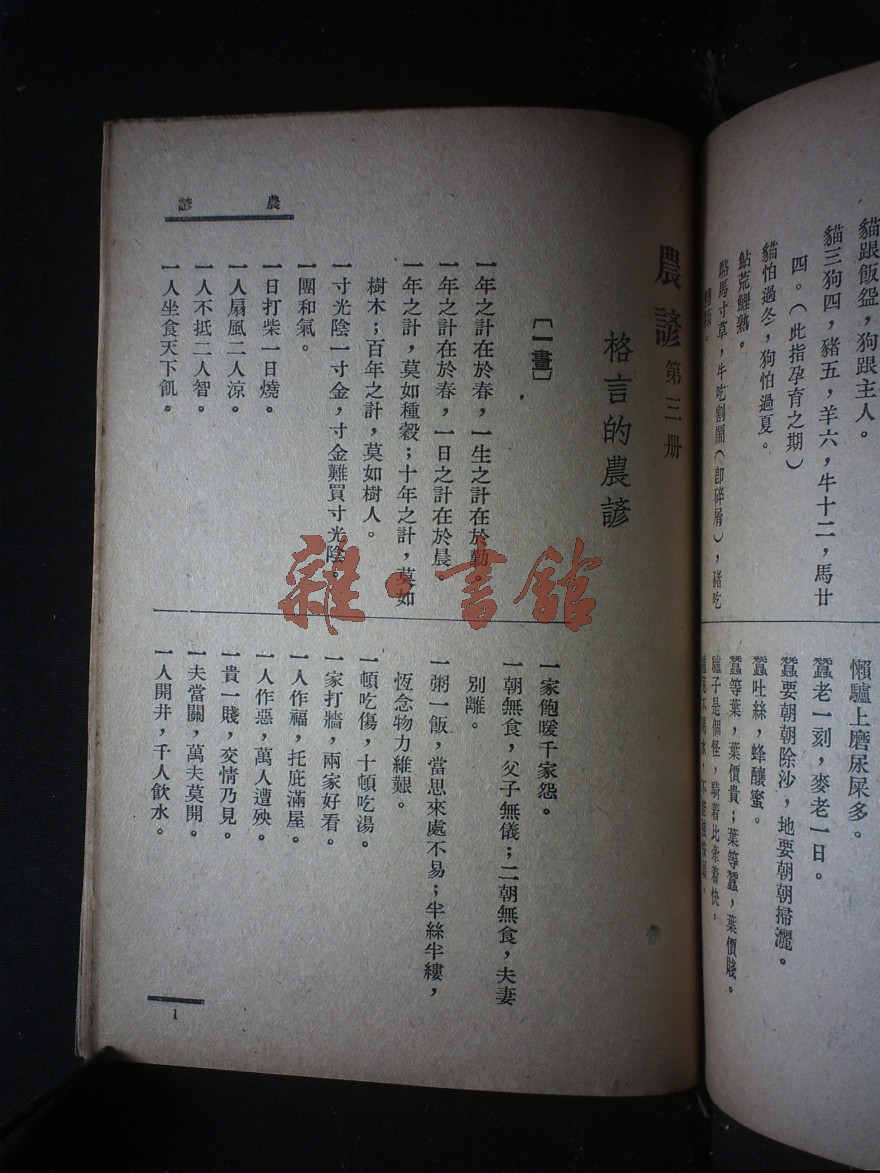 貓跟飯盌，狗跟主人。
貓三狗四，豬五，羊六，牛十二，馬廿
四。（此指孕育之期）
貓怕過冬，狗怕過夏。
鮎荒鯉熟。
路馬寸草，牛吃割鬧（卽碎屑），豬吃
懶驢上磨尿屎多。
蠶老一刻，麥老一日。
蠶要朝朝除沙，地要朝朝掃灑。
蠶吐絲，蜂釀蜜。
蠶等葉，葉價貴；葉等蠶，葉價賤。
驢子是個怪，騎着比牽着快。
農諺第三册
格言的農諺
〔一畫〕
一年之計在於春，一生之計在於勤。
一年之計在於春，一日之計在於晨。
一年之計，莫如種穀；十年之計，莫如
樹木；百年之計，莫如樹人。
一寸光陰一寸金，寸金難買寸光陰。
一團和氣。
一日打柴一日燒。
一人扇風二人涼。
一人不抵二人智。
一人坐食天下飢。
一家飽暖千家怨。
一朝無食，父子無儀；二朝無食，夫妻
別離。
一粥一飯，當思來處不易；半絲半縷，
恆念物力維艱。
一頓吃傷，十頓吃湯。
一家打牆，兩家好看。
一人作福，托庇滿屋。
一人作惡，萬人遭殃。
一貴一賤，交情乃見。
一夫當關，萬夫莫開。
一人開井，千人飲水。
農諺
1
雜·書館